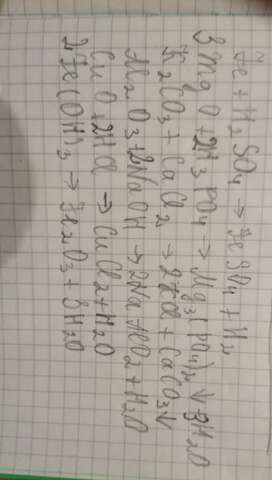 Fe + H2SO4 → FeSO4 + H2
3MgO + 2H3PO4 → Mg3(PO4)2 ↓ 3H2O
K2CO3 + CaCl2 → 2KCl + CaCO3↓
Al2O3 + 2NaOH → 2NaAlO2 + H2O
CuO + 2HCl → CuCl2 + H2O
2Fe(OH)3 → Fe2O3 + 3H2O